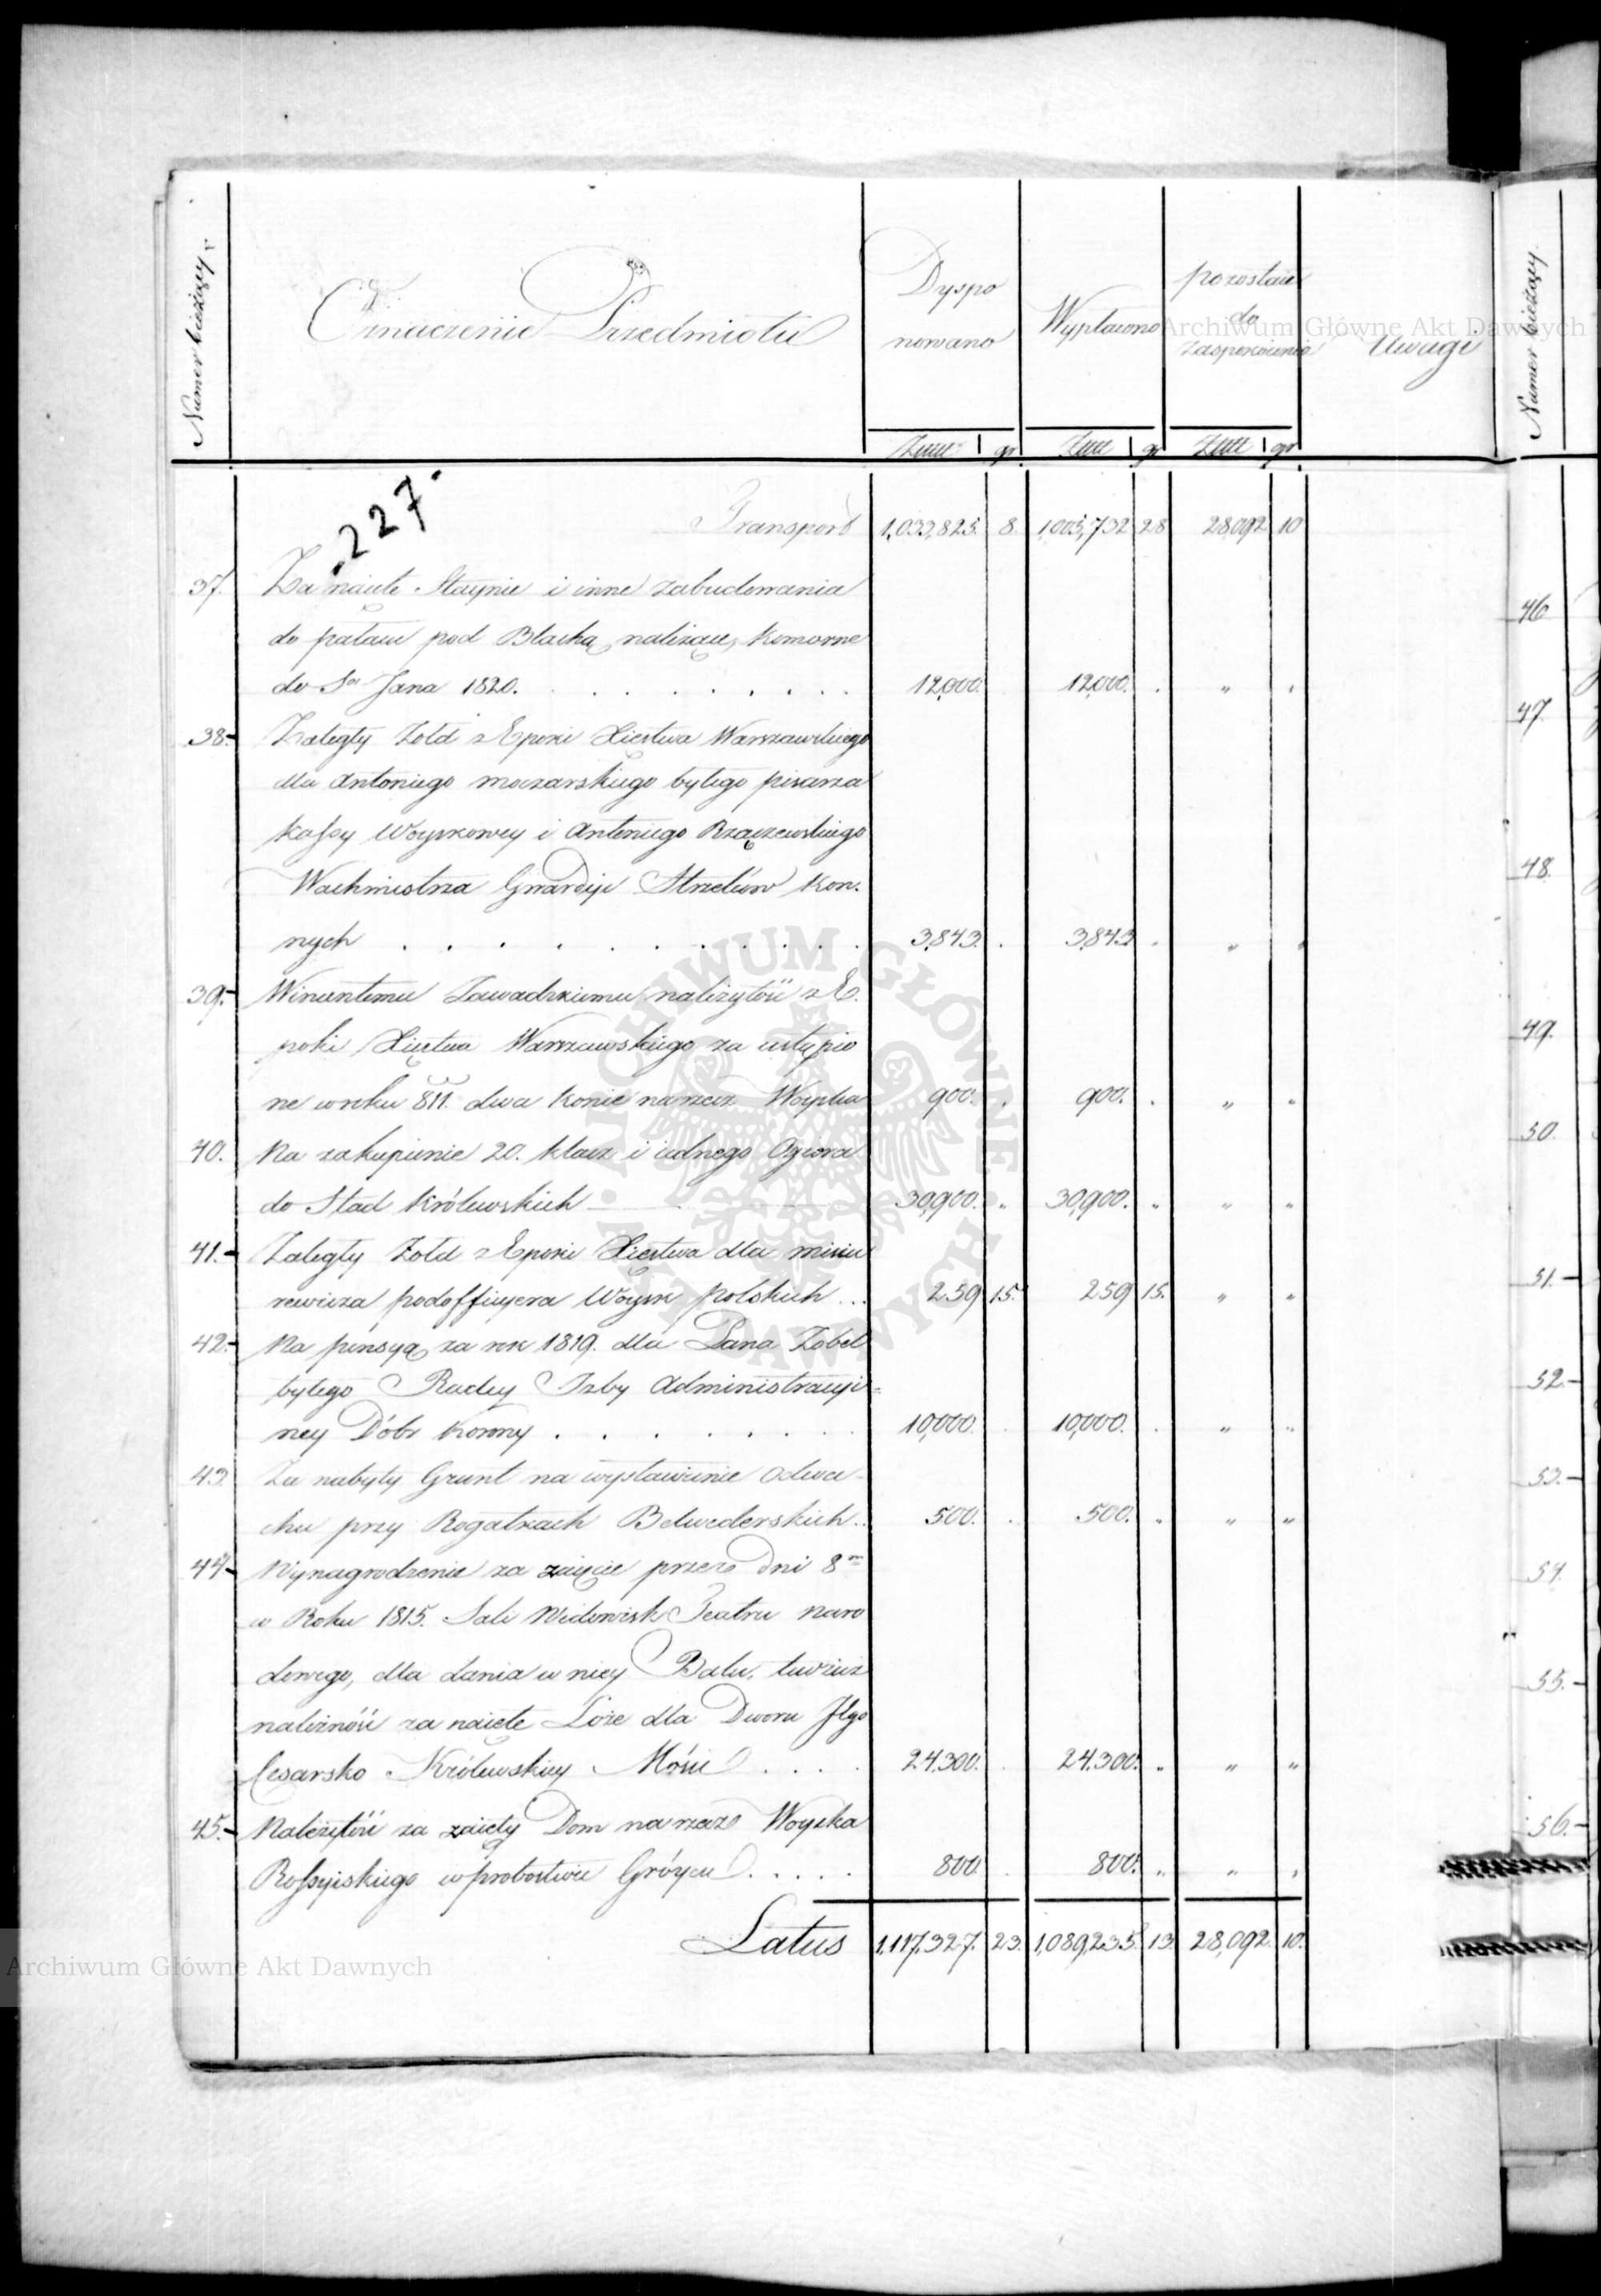 Numer bieżący
Oznaczenie Przedmiotu
Dyspo
nowano
Wypłacono
pozostaie
do
zaspokoienia
Uwagi
Numer bieżący
Złłł gr Złłł gr Złłł gr
227.
Transport 1,033,825. 8. 1,005,732 28 28,092 10
37. Za naięte Staynie i inne zabudowania
do pałacu pod Blachą należące, komorne
do So Jana 1820. . . . . . . . . 12,000. 12,000. . " "
38. Zaległy Żołd z Epoki Xięstwa Warszawskiego
dla Antoniego Moczarskiego byłego pisarza
Kassy Woyskowey i Antoniego Rzączewskiego
Wachmistrza Gwardyi Strzelców Kon.
nych . . . . . . . . . 3,843. . 3,843 . " "
39. Wincentemu Zawadzkiemu należytość z E.
poki Xięstwa Warszawskiego za ustąpio
ne w roku 811. dwa konie na rzecz Woyska 900. . 900. . " "
40. Na zakupienie 20. klacz i iednego Ogiera
do Stad Królewskich 30,900. " 30,900. " " "
41. Zaległy Żołd z Epoki Xięstwa dla Misiu
rewicza podofficyera Woysk polskich ... 259 15. 259 15. " "
42. Na pensyą za rok 1819. dla Pana Zobel
byłego Radcy Izby Administracyi=
ney Dóbr Korony . . . . . . . 10,000. . 10,000. . " "
43. Za nabyty Grunt na wystawienie odwa-
chu przy Rogatkach Belwederskich.. 500. . 500. " " "
44. Wynagrodzenie za zaięcie przez Dni 8m
w Roku 1815. Sali Widowisk Teatru naro
dowego, dla dania w niey Balu, tudzież
należność za naięte Loże dla Dworu Jego
Cesarsko Królewskiey Mości . . . . 24,300. . 24,300. " " "
45. Należytość za zaięty Dom na rzecz Woyska
Rossyiskiego w probostwie Gróycu . . . . 800. . 800. " " "
Latus 1,117,327. 23. 1,089,235. 13 28,092. 10.
46.
47.
48.
49.
50.
51.
52.
53.
54.
55.
56.
Archiwum Główne Akt Dawnych
ARCHIWUM GŁÓWNE AKT DAWNYCH
Archiwum Główne Akt Dawnych